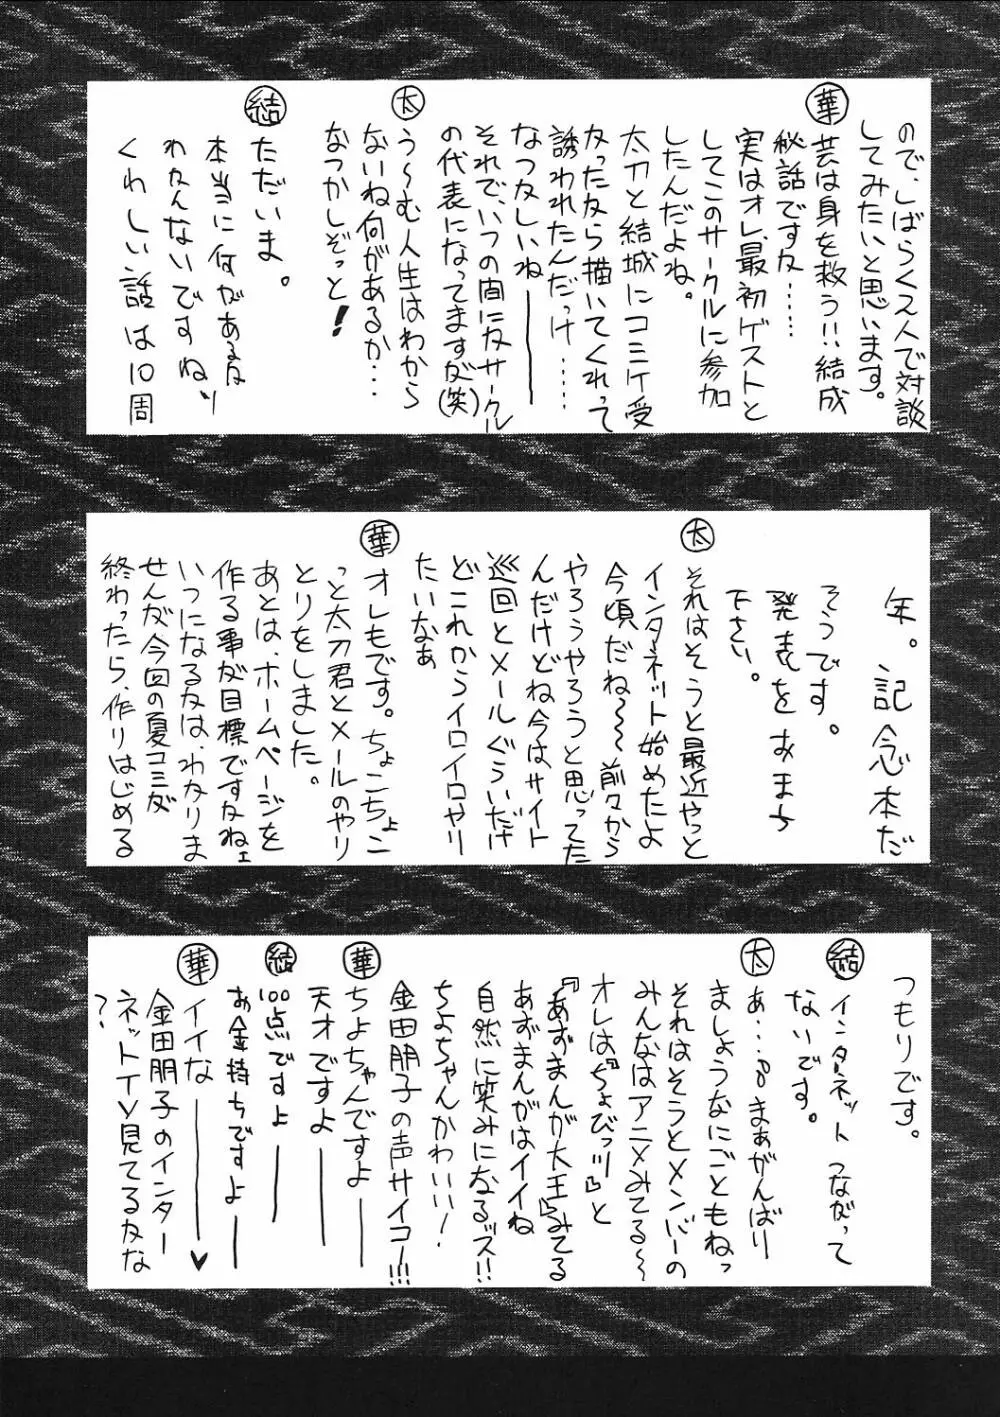 ので、しばらく2人で対談
してみたいと思います。
華 芸は身を救う!!結成
秘話ですな……
実はオレ、最初ゲストと
してこのサークルに参加
したんだよね。
太刀と結城にコミケ受
かったなら描いてくれって
誘われたんだっけ……
なつかしいね――
それで、いつの間にかサークル
の代表になってますが(笑)
太 う〜む人生はわから
ないね何があるか…
なつかしぞっと!
結 ただいま。
本当に何があるか
わかんないですね〜
くわしい話は10周
年。記念本だ
そうです。
発表をおまち
下さい。
太 それはそうと最近やっと
インタネット始めたよ
今頃だね〜〜前々から
やろうやろうと思ってた
んだけどね今はサイト
巡回とメールぐらいだけ
どこれからイロイロやり
たいなぁ
華 オレもです。ちょこちょこ
っと太刀君とメールのやり
とりをしました。
あとは、ホームページを
作る事が目標ですかね。
いつになるかは、わかりま
せんが今回の夏コミが
終わったら、作りはじめる
つもりです。
結 インターネットつながって
ないです。
太 あ…。まぁがんばり
ましょうなにごともねっ
それはそうとメンバーの
みんなはアニメみてる〜
オレは『ちょびっツ』と
『あずまんが大王』みてる
あずまんがはイイね
自然に笑みになるッス!!
ちよちゃんかわいい!
金田朋子の声サイコー!!!
華 ちよちゃんですよ――
天才ですよ――
結 100点ですよ――
お金持ちですよ――
華 イイな――♥
金田朋子のインター
ネットTV見てるかな
?